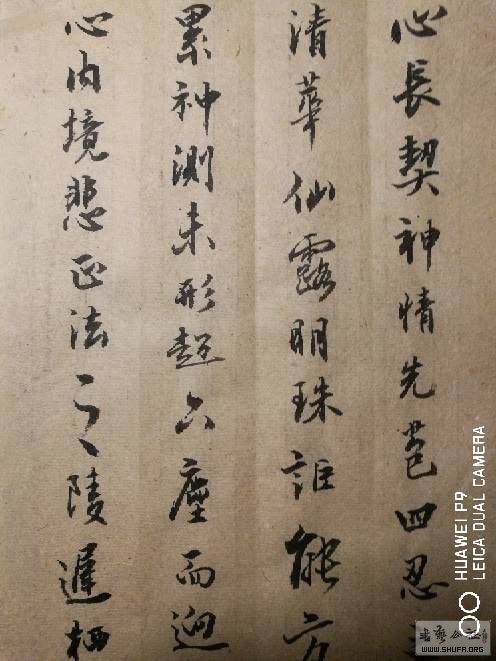 心長契神情先苞四忍
清華仙露明珠詎能方
累神測未形超六塵而迥
心内境悲正法之陵遲栖
HUAWEI P9
LEICA DUAL CAMERA
WWW.SHUFA.ORG